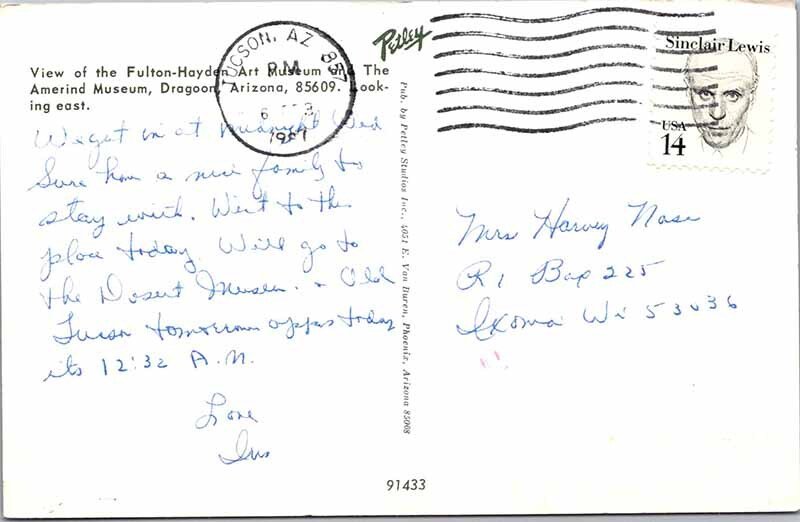 Petley
View of the Fulton-Hayden Art Museum The
Amerind Museum, Dragoon, Arizona, 85609. Look-
ing east.
TUCSON, AZ 857
PM
6
1987
Sinclair Lewis
USA
14
We get in at midnight Wed
Sure have a nice family to
stay with. Went to this
place today. Will go to
the Desert Museum. & Old
Tucson tomorrow today
its 12:32 A.M.
Love
Pub. by Petley Studios Inc., 4051 E. Van Buren, Phoenix, Arizona 85008
Mrs Harvey Nase
R 1 Box 225
Ixonia Wi 53036
91433